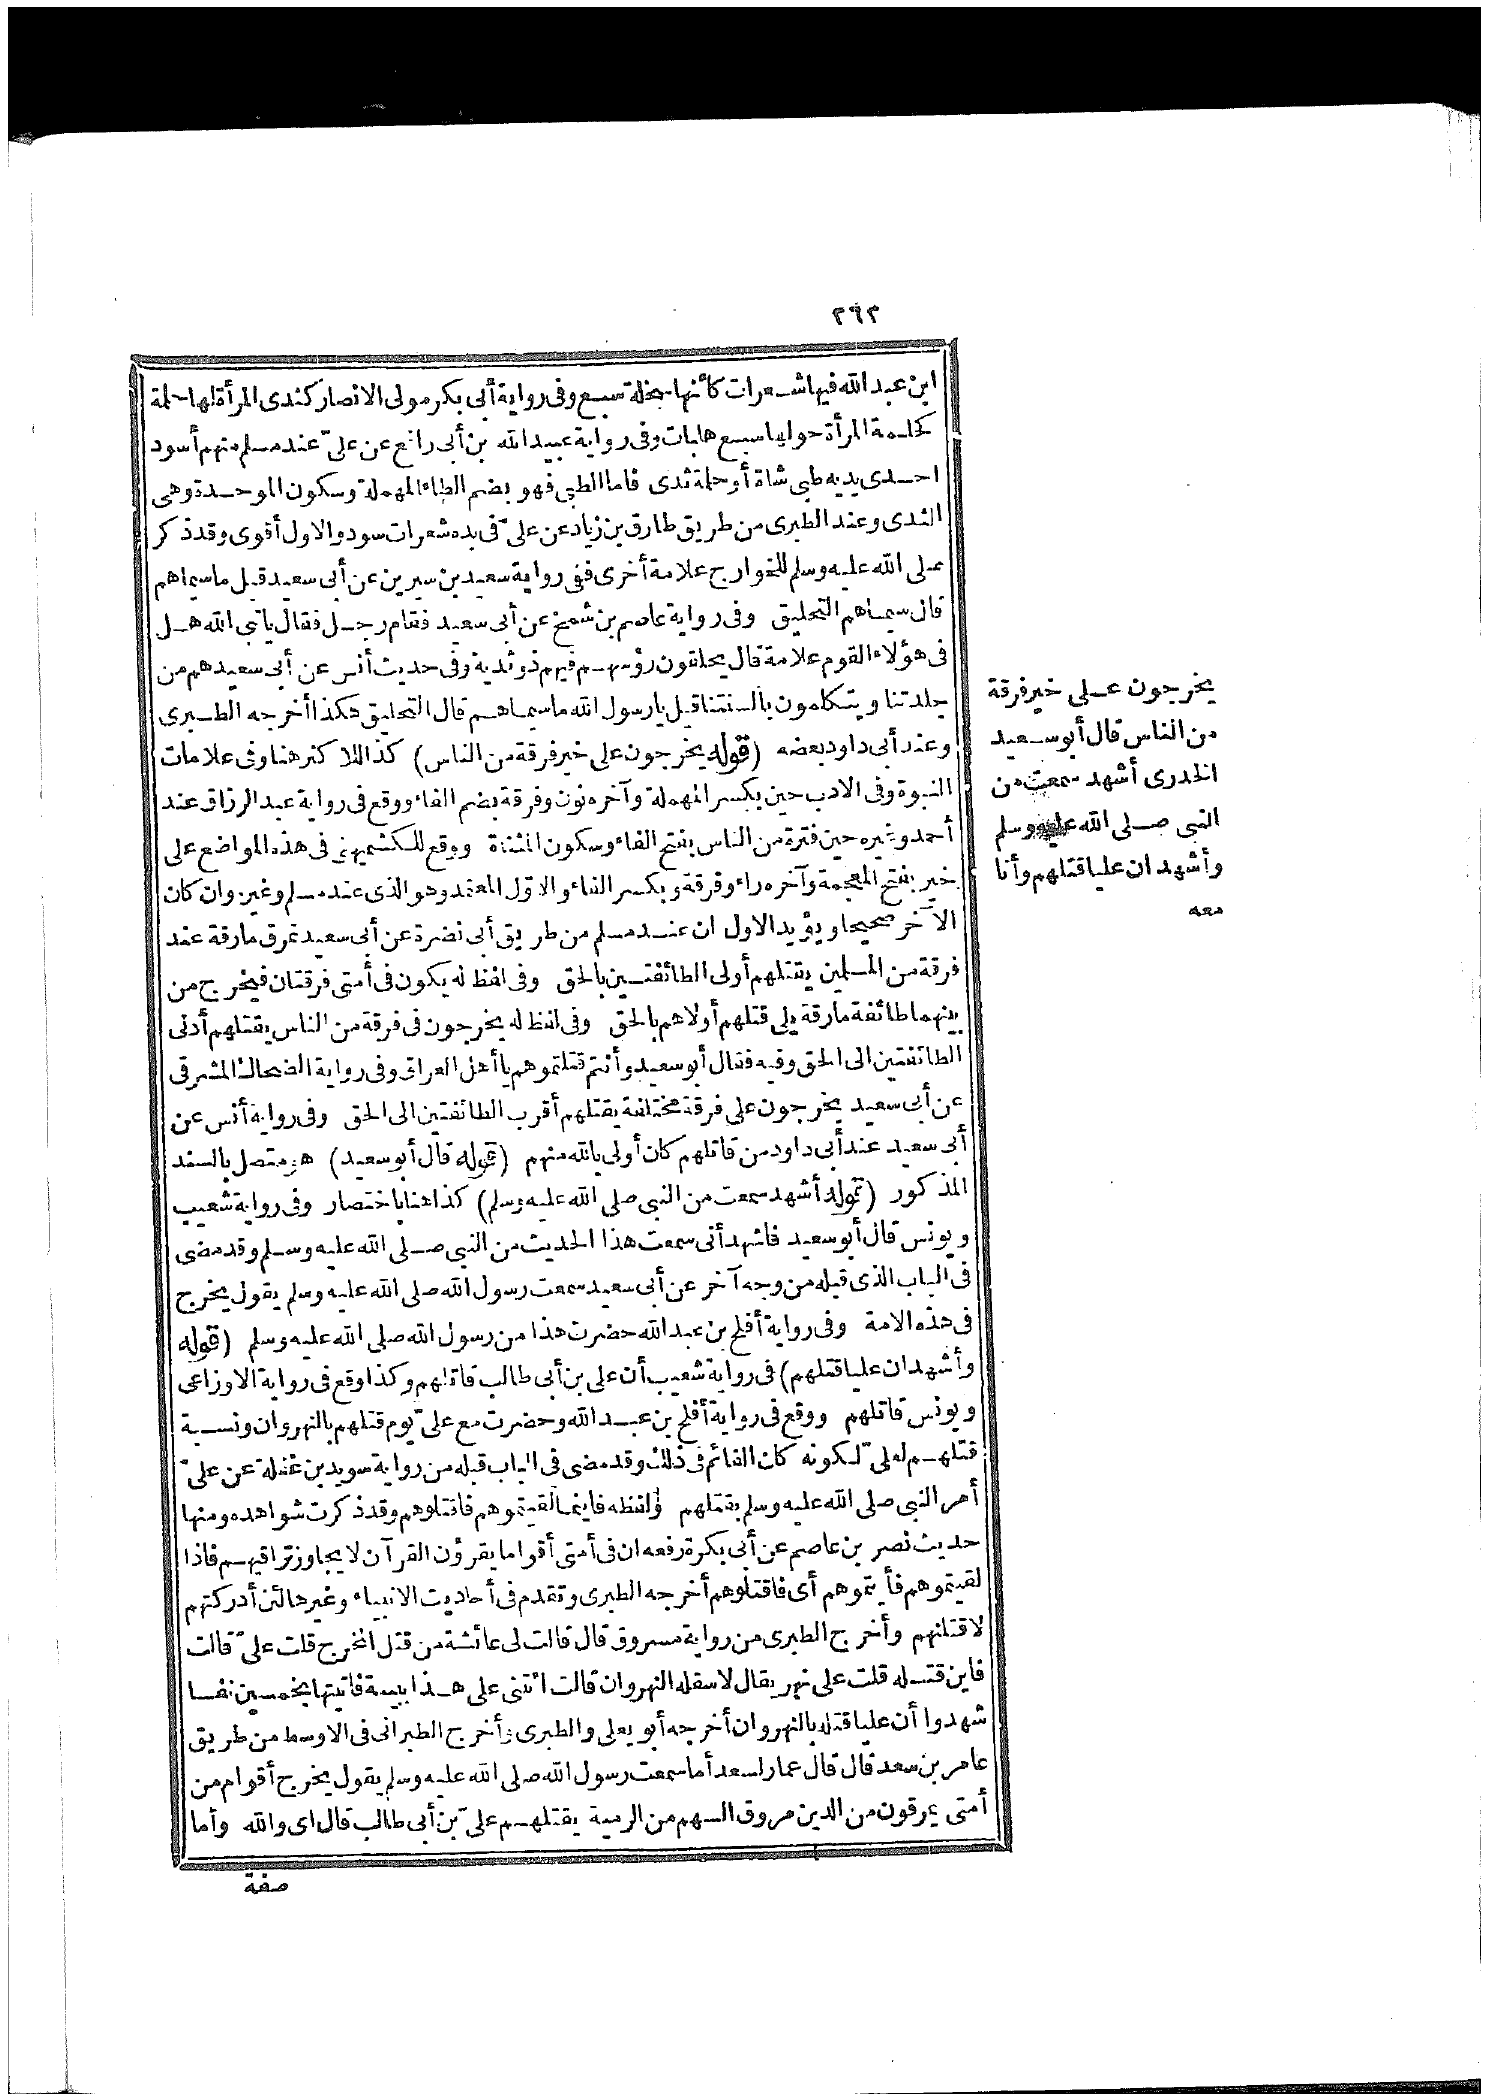 ٢٦٢
ابن عبد الله فيها شعرات كأنها سخلة سبع وفى رواية أبى بكر مولى الانصار كثدى المرأة لها حلمة
كحلمة المرأة حولها سبع هلبات وفى رواية عبيد الله بن أبى رافع عن علىّ عند مسلم منهم أسود
احدى يديه طبى شاة أو حلمة ثدى فاما الطبى فهو بضم الطاء المهملة وسكون الموحدة وهى
الثدى وعند الطبرى من طريق طارق بن زياد عن علىّ فى يده شعرات سود والاول أقوى وقد ذكر
صلى الله عليه وسلم للخوارج علامة أخرى ففى رواية سعيد بن سيرين عن أبى سعيد قيل ما سيماهم
قال سيماهم التحليق وفى رواية عاصم بن شمخ عن أبى سعيد فقام رجل فقال يانبى الله هل
فى هؤلاء القوم علامة قال يحلقون رؤسهم فيهم ذو ثدية وفى حديث أنس عن أبى سعيد هم من
جلدتنا ويتكلمون بألسنتنا قيل يا رسول الله ما سيماهم قال التحليق هكذا أخرجه الطبرى
وعند أبى داود بعضه (قوله يخرجون على خير فرقة من الناس) كذا للاكثر هنا وفى علامات
النبوة وفى الادب حين بكسر المهملة وآخره نون وفرقة بضم الفاء ووقع فى رواية عبد الرزاق عند
أحمد وغيره حين فترة من الناس بفتح الفاء وسكون المثناة ووقع للكشميهنى فى هذه المواضع على
خير بفتح المعجمة وآخره راء وفرقة وبكسر الفاء والاول المعتمد وهو الذى عند مسلم وغيره وان كان
الآخر صحيحا ويؤيد الاول ان عند مسلم من طريق أبى نضرة عن أبى سعيد تمرق مارقة عند
فرقة من المسلمين يقتلهم أولى الطائفتين بالحق وفى لفظ له يكون فى أمتى فرقتان فيخرج من
بينهما طائفة مارقة يلى قتلهم أولاهم بالحق وفى لفظ له يخرجون فى فرقة من الناس يقتلهم أدنى
الطائفتين الى الحق وفيه فقال أبو سعيد وأنتم قتلتموهم يا أهل العراق وفى رواية الضحاك المشرقى
عن أبى سعيد يخرجون على فرقة مختلفة يقتلهم أقرب الطائفتين الى الحق وفى رواية أنس عن
أبى سعيد عند أبى داود من قاتلهم كان أولى بالله منهم (قوله قال أبو سعيد) هو متصل بالسند
المذكور (قوله أشهد سمعت من النبى صلى الله عليه وسلم) كذا هنا باختصار وفى رواية شعيب
ويونس قال أبو سعيد فاشهد أنى سمعت هذا الحديث من النبى صلى الله عليه وسلم وقد مضى
فى الباب الذى قبله من وجه آخر عن أبى سعيد سمعت رسول الله صلى الله عليه وسلم يقول يخرج
فى هذه الامة وفى رواية أفلح بن عبد الله حضرت هذا من رسول الله صلى الله عليه وسلم (قوله
وأشهد ان عليا قتلهم) فى رواية شعيب أن على بن أبى طالب قاتلهم وكذا وقع فى رواية الاوزاعى
ويونس قاتلهم ووقع فى رواية أفلح بن عبد الله وحضرت مع علىّ يوم قتلهم بالنهروان ونسبة
قتلهم لعلىّ لكونه كان القائم فى ذلك وقد مضى فى الباب قبله من رواية سويد بن غفلة عن علىّ
أمر النبى صلى الله عليه وسلم بقتلهم ولفظه فاينما لقيتموهم فاقتلوهم وقد ذكرت شواهده ومنها
حديث نصر بن عاصم عن أبى بكرة رفعه ان فى أمتى أقواما يقرؤن القرآن لا يجاوز تراقيهم فاذا
لقيتموهم فأنيموهم أى فاقتلوهم أخرجه الطبرى وتقدم فى أحاديث الانبياء وغيرها لئن أدركتهم
لاقتلنهم وأخرج الطبرى من رواية مسروق قال قالت لى عائشة من قتل المخرج قلت علىّ قالت
فاين قتله قلت على نهر يقال لاسفله النهروان قالت ائتنى على هذا ببينة فاتيتها بخمسين نفسا
شهدوا أن عليا قتله بالنهروان أخرجه أبو يعلى والطبرى وأخرج الطبرانى فى الاوسط من طريق
عامر بن سعد قال قال عمار لسعد أما سمعت رسول الله صلى الله عليه وسلم يقول يخرج أقوام من
أمتى يمرقون من الدين مروق السهم من الرمية يقتلهم علىّ بن أبى طالب قال اى والله وأما
صفة
يخرجون على خير فرقة
من الناس قال أبو سعيد
الخدرى أشهد سمعت من
النبى صلى الله عليه وسلم
وأشهد ان عليا قتلهم وأنا
معه